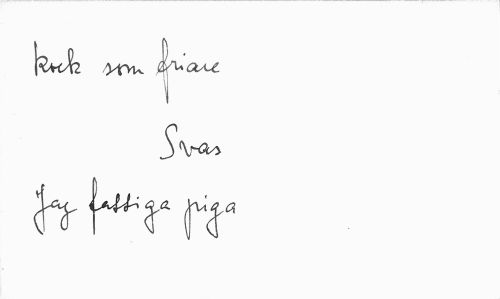 kock som friare
Svas
Jag fattiga piga